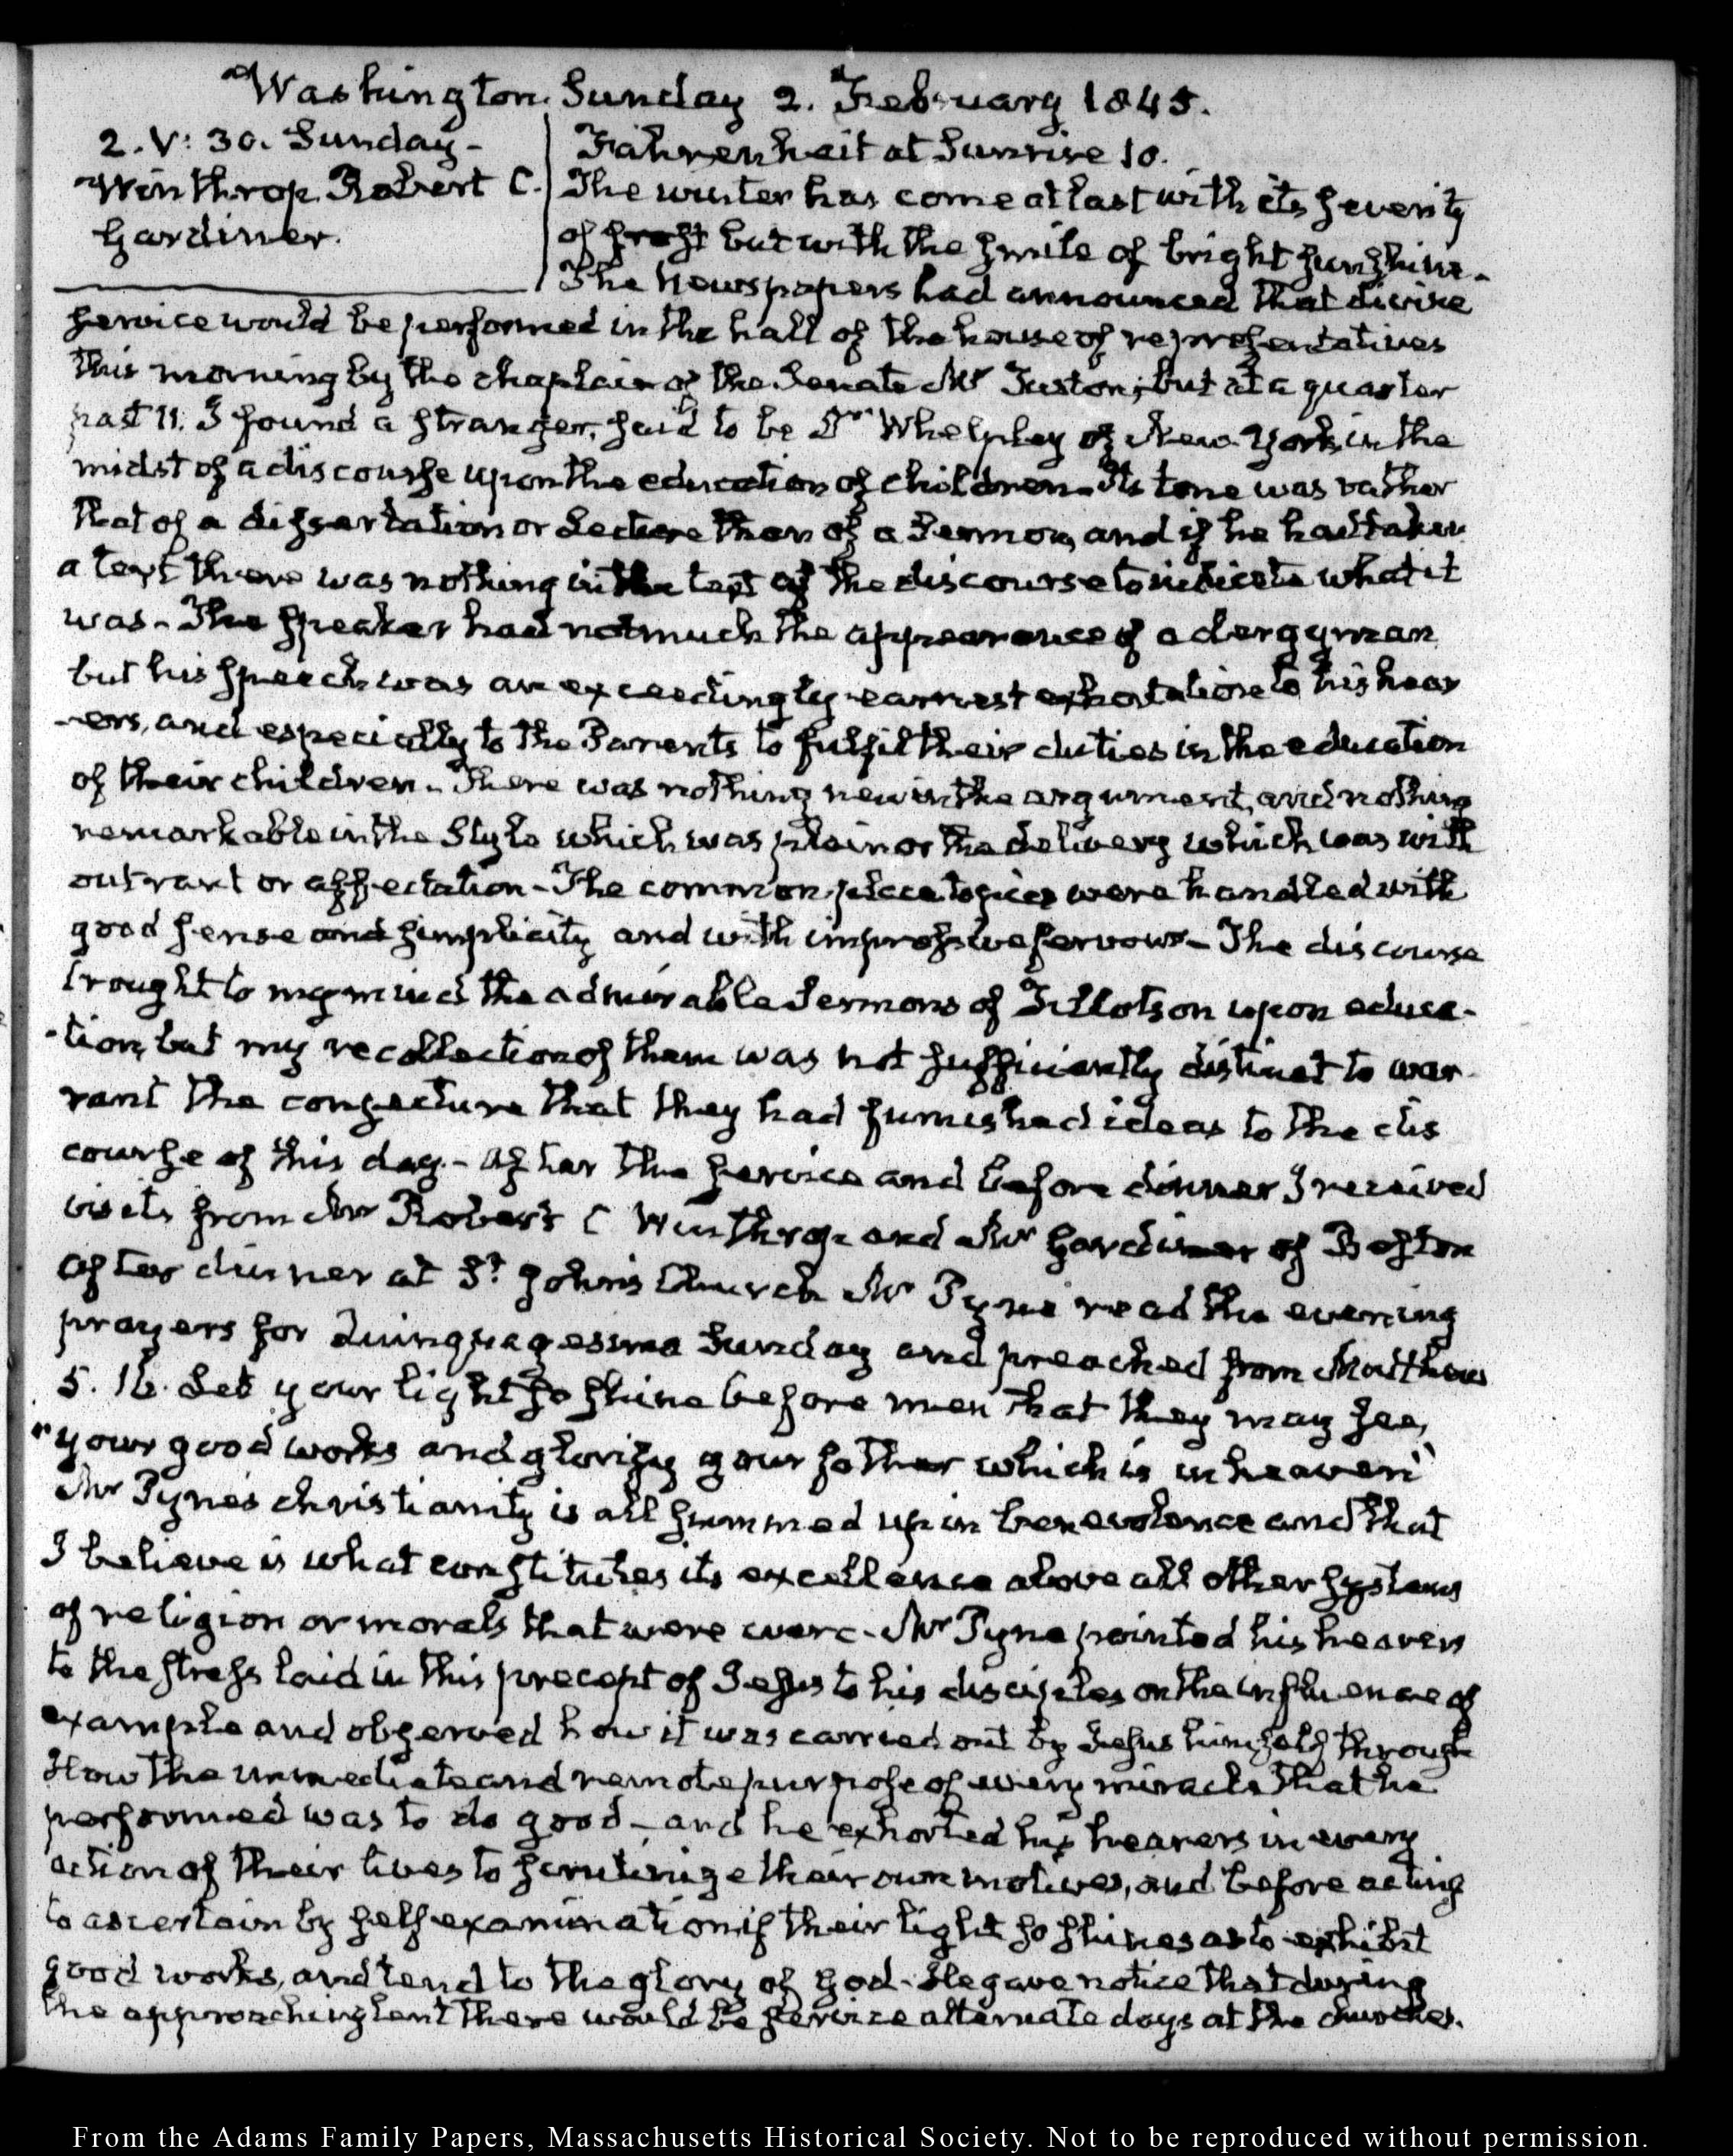 Washington Sunday 2. February 1845.
2. V: 30. Sunday-
Winthrop. Robert C.
Gardiner.
Fahrenheit at Sunrise 10.
The winter has come at last with its severity
of frost but with the smile of bright sunshine-
The Newspapers had announced that divine
service would be performed in the hall of the house of representatives
this morning by the chaplain of the Senate Mr Tuston; but at a quarter
past 11. I found a stranger, said to be Dr Whelpley of New-York, in the
midst of a discourse upon the education of children- Its tone was rather
that of a dissertation or Lecture than of a Sermon, and if he had taken
a text there was nothing in the text of the discourse to indicate what it
was- The speaker had not much the appearance of a clergyman
but his speech was an exceedingly earnest exhortation to his hear
-ers, and especially to the Parents to fulfil their duties in the education
of their children- There was nothing new in the argument, and nothing
remarkable in the Style which was plain or the delivery which was with
out rant or affectation- The common place topics were handled with
good sense and simplicity and with impressive fervour- The discourse
brought to my mind the admirable Sermons of Tillotson upon educa-
-tion, but my recollection of them was not sufficiently distinct to war-
rant the conjecture that they had furnished ideas to the dis
course of this day- After the service and before dinner I received
visits from Mr Robert C Winthrop and Mr Gardiner of Boston
After dinner at St John's Church Mr Pyne read the evening
prayers for Quinquagesima Sunday and preached from Matthew
5. 16. Let your light so shine before men that they may see,
"your good works and glorify your father which is in heaven"
Mr Pyne's christianity is all summed up in benevolence and that
I believe is what constitutes its excellence above all other systems
of religion or morals that were ever- Mr Pyne pointed his hearers
to the stress laid in this precept of Jesus to his disciples on the influence of
example and observed how it was carried out by Jesus himself through
How the immediate and remote purpose of every miracle that he
performed was to do good- and he exhorted his hearers in every
action of their lives to scrutinize their own motives, and before acting
to ascertain by self examination if their light so shines as to exhibit
good works, and tend to the glory of God- He gave notice that during
the approaching lent there would be service alternate days at the churches.
From the Adams Family Papers, Massachusetts Historical Society. Not to be reproduced without permission.